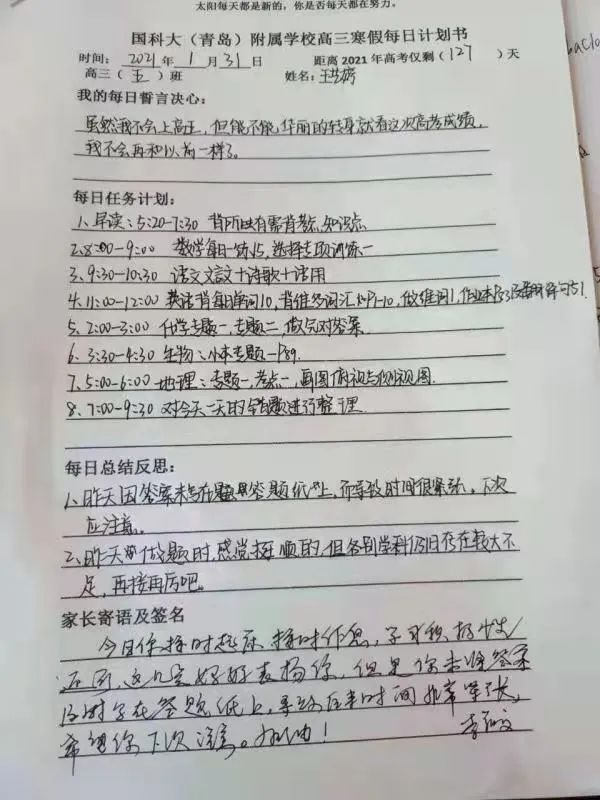 太阳每天都是新的，你是否每天都在努力。
国科大（青岛）附属学校高三寒假每日计划书
时间：2021年1月31日 距离2021年高考仅剩（127）天
高三（五）班 姓名：王
我的每日誓言决心：
虽然我不会上高五，但能不能华丽的转身就看这次高考成绩，
我不会再和以前一样了。
每日任务计划：
1、早读：5:20-7:30 背所有需背考点、知识点
2、8:00-9:00 数学每日一练15，选择专项训练一
3、9:30-10:30 语文文言文+诗歌+语用
4、11:00-12:00 英语背每日单词10，背维多词汇P1-10，做维词1，作业本P53及翻译句1.
5、2:00-3:00 化学专题一、专题二，做完对答案.
6、3:30-4:30 生物：小本专题一P89.
7、5:00-6:00 地理：专题一，考点一，画图俯视与侧视图.
8、7:00-9:30 对今天一天的错题进行整理
每日总结反思：
1、昨天因答案未写在答题纸上，而导致时间很紧张，下次
应注意。
2、昨天做题时，感觉挺顺的，但各别学科仍旧存在较大不
足，再接再厉吧。
家长寄语及签名
今日你按时起床 按时作息，学习积极性
这几点好好表扬你，但是你未将答案
及时写在答题纸上，导致后来时间非常紧张，
希望你下次注意。加油！
李